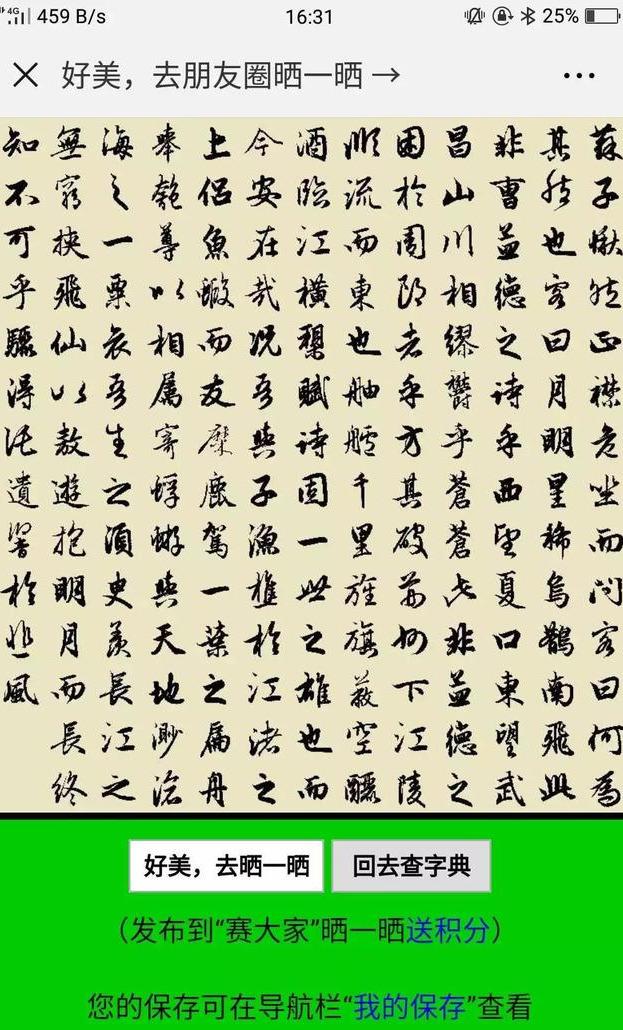 4G 459 B/s 16:31 25%
好美，去朋友圈晒一晒 →
蘇子愀然正襟危坐而問客曰何為
其然也客曰月明星稀烏鵲南飛此
非曹孟德之詩乎西望夏口東望武
昌山川相繆鬱乎蒼蒼此非孟德之
困於周郎者乎方其破荊州下江陵
順流而東也舳艫千里旌旗蔽空釃
酒臨江橫槊賦詩固一世之雄也而
今安在哉況吾與子漁樵於江渚之
上侶魚蝦而友麋鹿駕一葉之扁舟
舉匏尊以相屬寄蜉蝣與天地渺滄
海之一粟哀吾生之須臾羨長江之
無窮挾飛仙以遨遊抱明月而長終
知不可乎驟得託遺響於悲風
好美，去晒一晒 回去查字典
（发布到“赛大家”晒一晒送积分）
您的保存可在导航栏“我的保存”查看